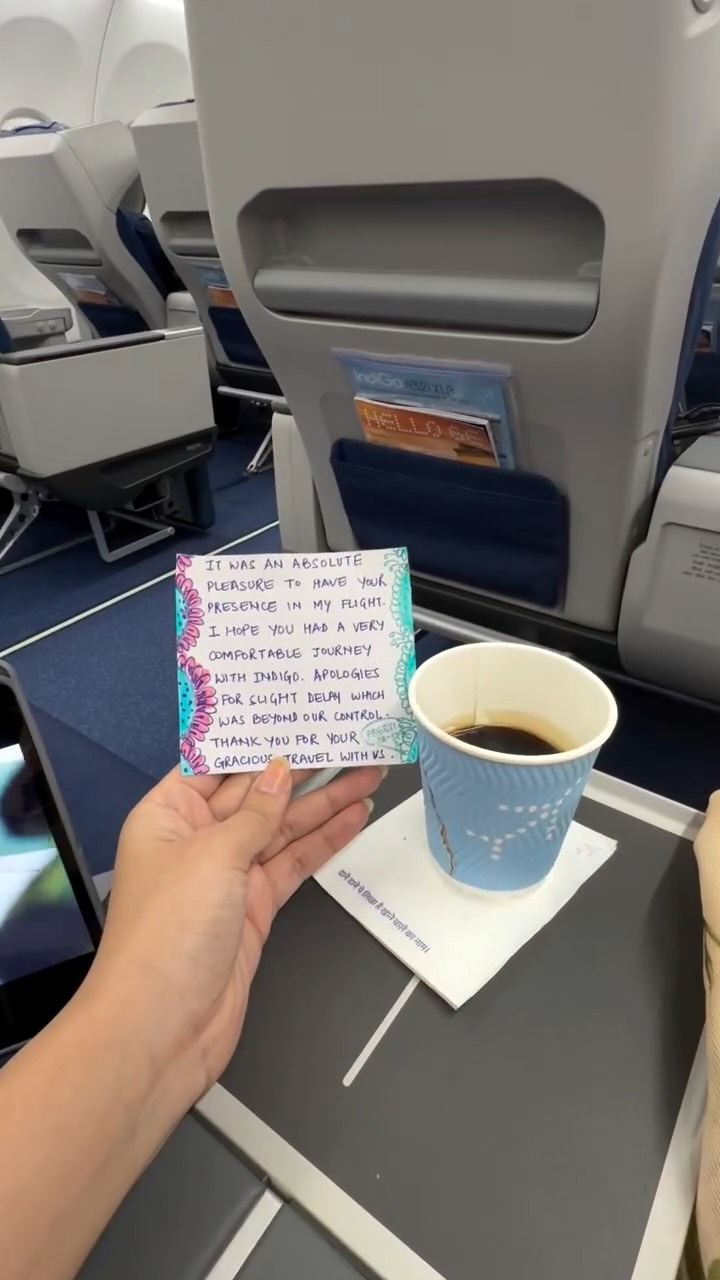 IndiGo A321XLR
HELLO 6E
IT WAS AN ABSOLUTE
PLEASURE TO HAVE YOUR
PRESENCE IN MY FLIGHT.
I HOPE YOU HAD A VERY
COMFORTABLE JOURNEY
WITH INDIGO. APOLOGIES
FOR SLIGHT DELAY WHICH
WAS BEYOND OUR CONTROL.
THANK YOU FOR YOUR
GRACIOUS TRAVEL WITH US.
दाने दाने पे लिखा है खाने वाले का नाम।